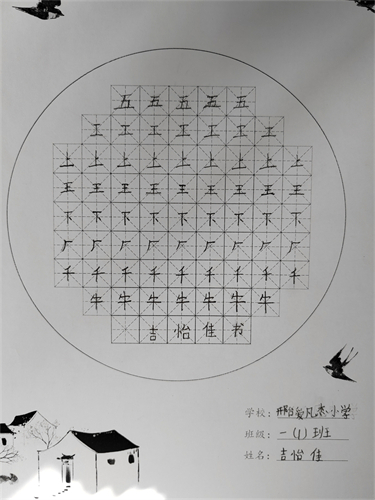 五五五五五
工工工工工工工
上上上上上上上上上
王王王王王王王王王
下下下下下下下下下
厂厂厂厂厂厂厂厂厂
千千千千千千千千千
牛牛牛牛牛牛牛
吉怡佳书
学校：爱凡杰小学
班级：一(1)班
姓名：吉怡佳